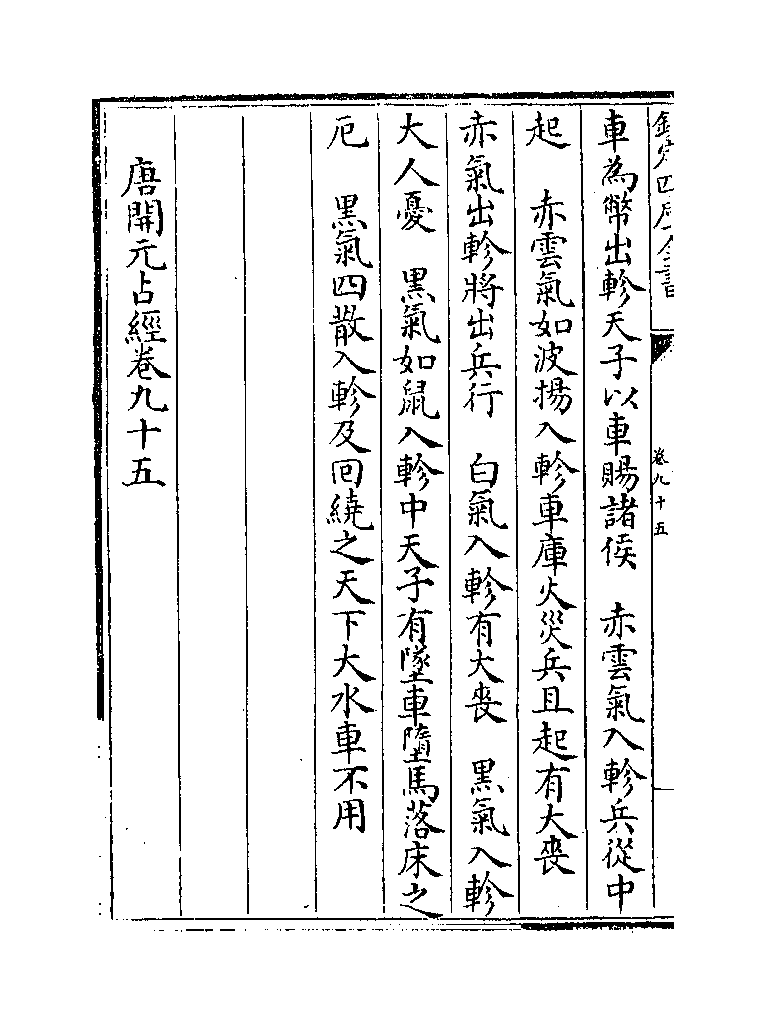 欽定四庫全書
卷九十五
車為幣出軫天子以車賜諸侯　赤雲氣入軫兵從中
起　赤雲氣如波揚入軫車庫火災兵且起有大喪
赤氣出軫將出兵行　白氣入軫有大喪　黒氣入軫
大人憂　黒氣如鼠入軫中天子有墜車墮馬落床之
厄　黒氣四散入軫及回繞之天下大水車不用
唐開元占經卷九十五